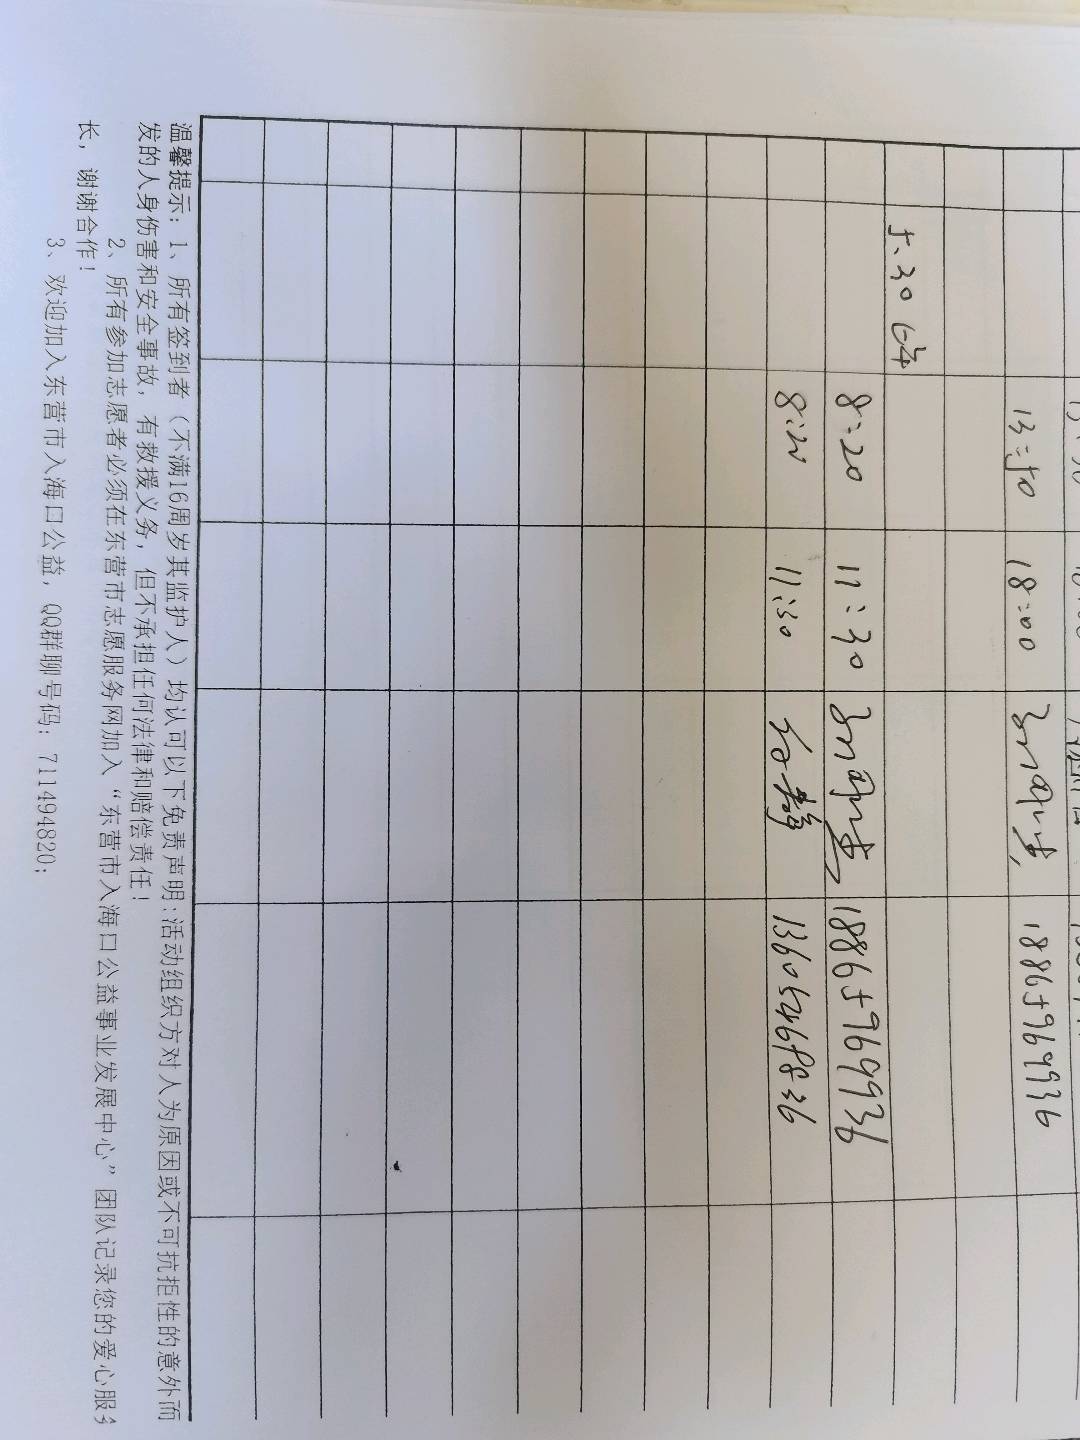 13:50 18:00 18865969936
5.30上午
8:20 11:30 18865969936
8:20 11:30 徐静 13605468836
温馨提示：1、所有签到者（不满16周岁其监护人）均认可以下免责声明：活动组织方对人为原因或不可抗拒性的意外而
发的人身伤害和安全事故，有救援义务，但不承担任何法律和赔偿责任！
2、所有参加志愿者必须在东营市志愿服务网加入“东营市入海口公益事业发展中心”团队记录您的爱心服务
长，谢谢合作！
3、欢迎加入东营市入海口公益，QQ群聊号码：711494820；